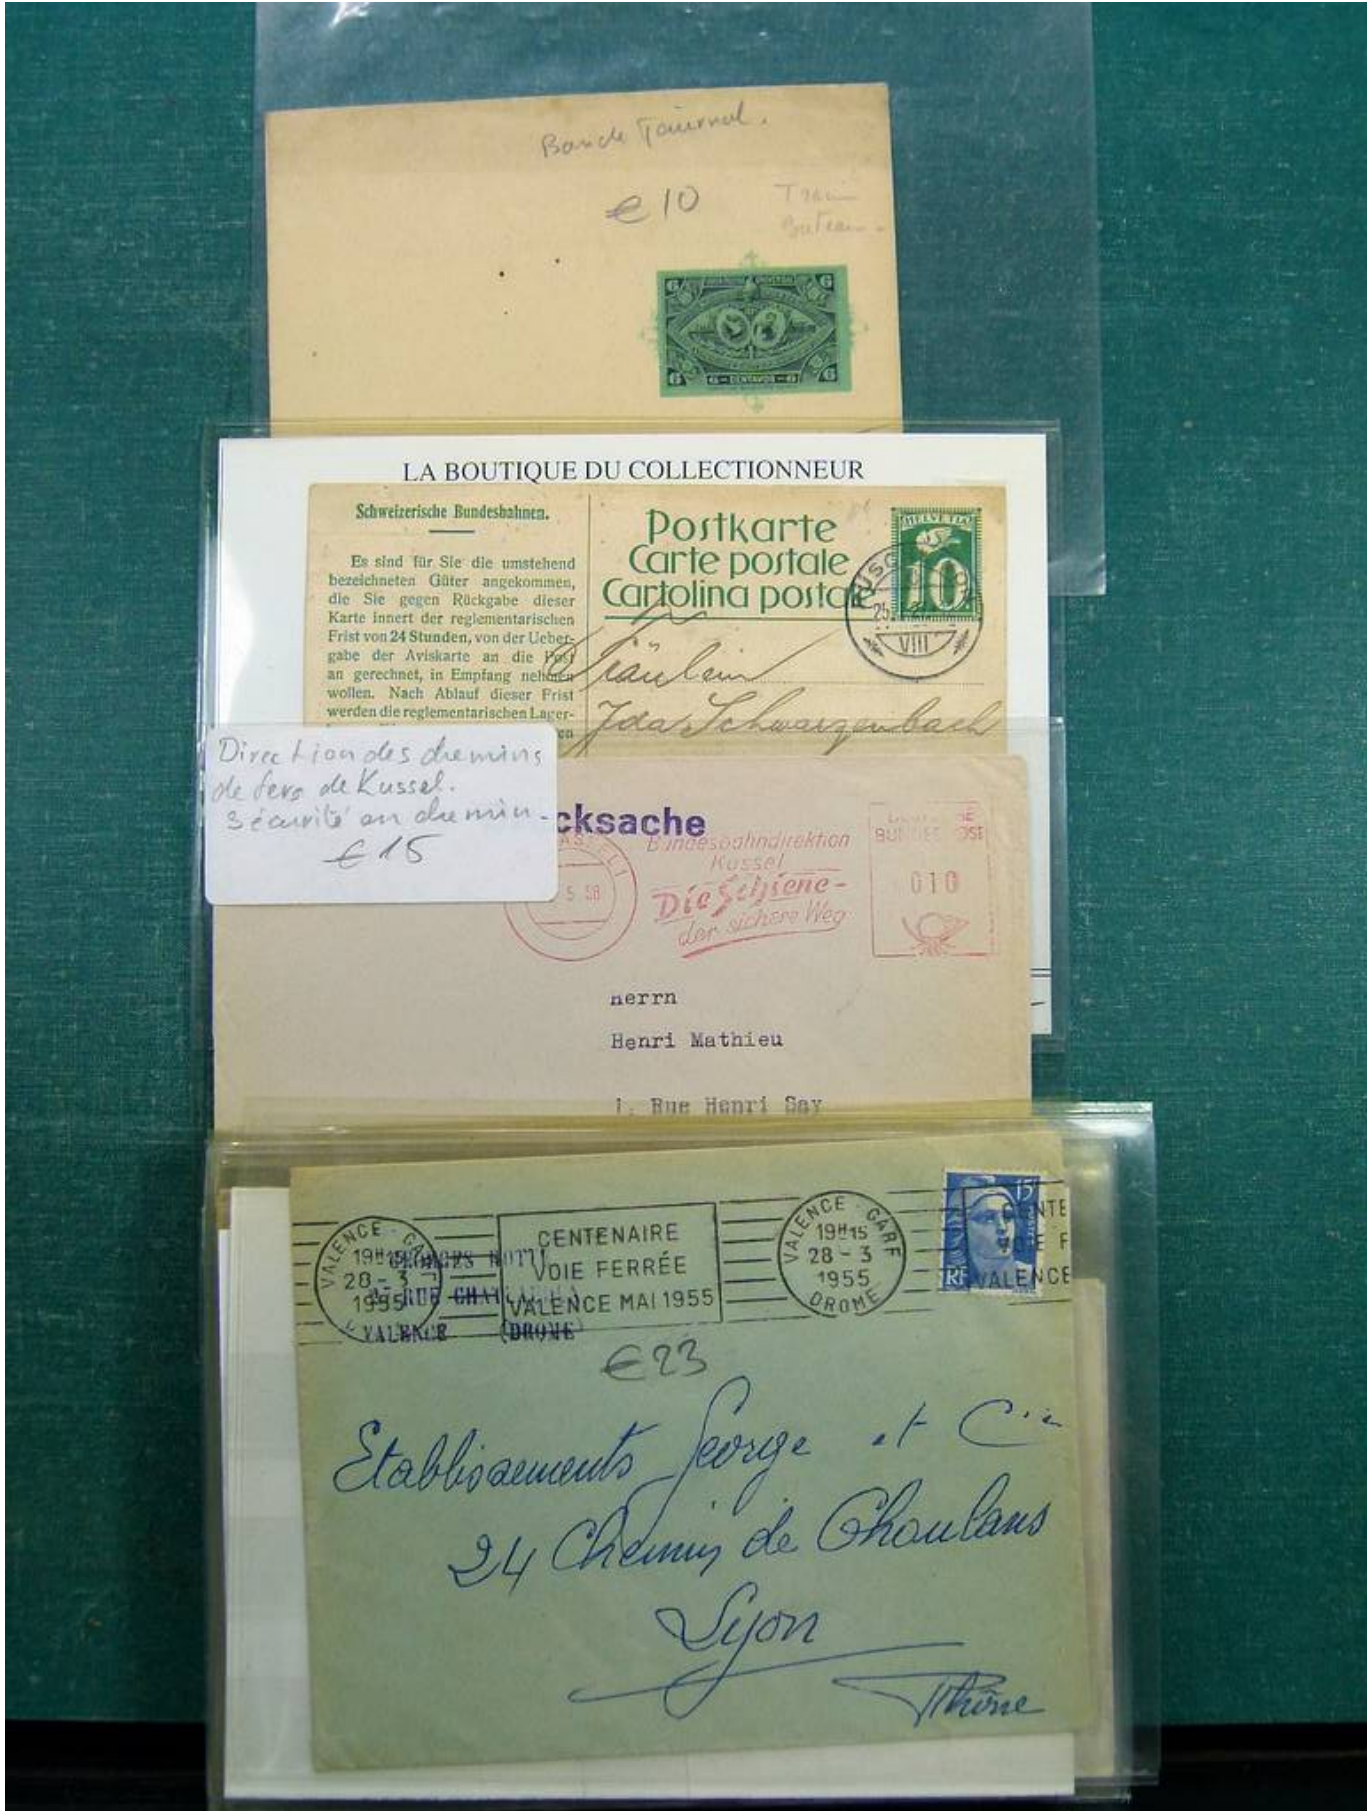 Bande Journal.
€ 10
Train
Bateau -
6 6
6 - CENTAVOS - 6
6 6
LA BOUTIQUE DU COLLECTIONNEUR
Schweizerische Bundesbahnen.
Es sind für Sie die umstehend
bezeichneten Güter angekommen,
die Sie gegen Rückgabe dieser
Karte innert der reglementarischen
Frist von 24 Stunden, von der Ueber-
gabe der Aviskarte an die Post
an gerechnet, in Empfang nehmen
wollen. Nach Ablauf dieser Frist
werden die reglementarischen Lager-
en
Postkarte
Carte postale
Cartolina posta
HELVETIA
10
VIII
Fräulein
Ida Schwarzenbach
Direction des chemins
de fers de Kassel.
sécurité en chemin -
€ 15
cksache
5 58
Bundesbahndirektion
Kassel
Die Schiene -
der sichere Weg
DEUTSCHE
BUNDESPOST
010
Herrn
Henri Mathieu
1, Rue Henri Say
VALENCE - GA
19H15
28 - 3
1955
GEORGES
RUE
VALENCE (DROME)
CENTENAIRE
VOIE FERRÉE
VALENCE MAI 1955
VALENCE - GARE
19H15
28 - 3
1955
DROME
15F
RF
CENTE
VOIE F
VALENCE
€23
Etablissements George et Cie
24 Chemin de Choulans
Lyon
Rhône